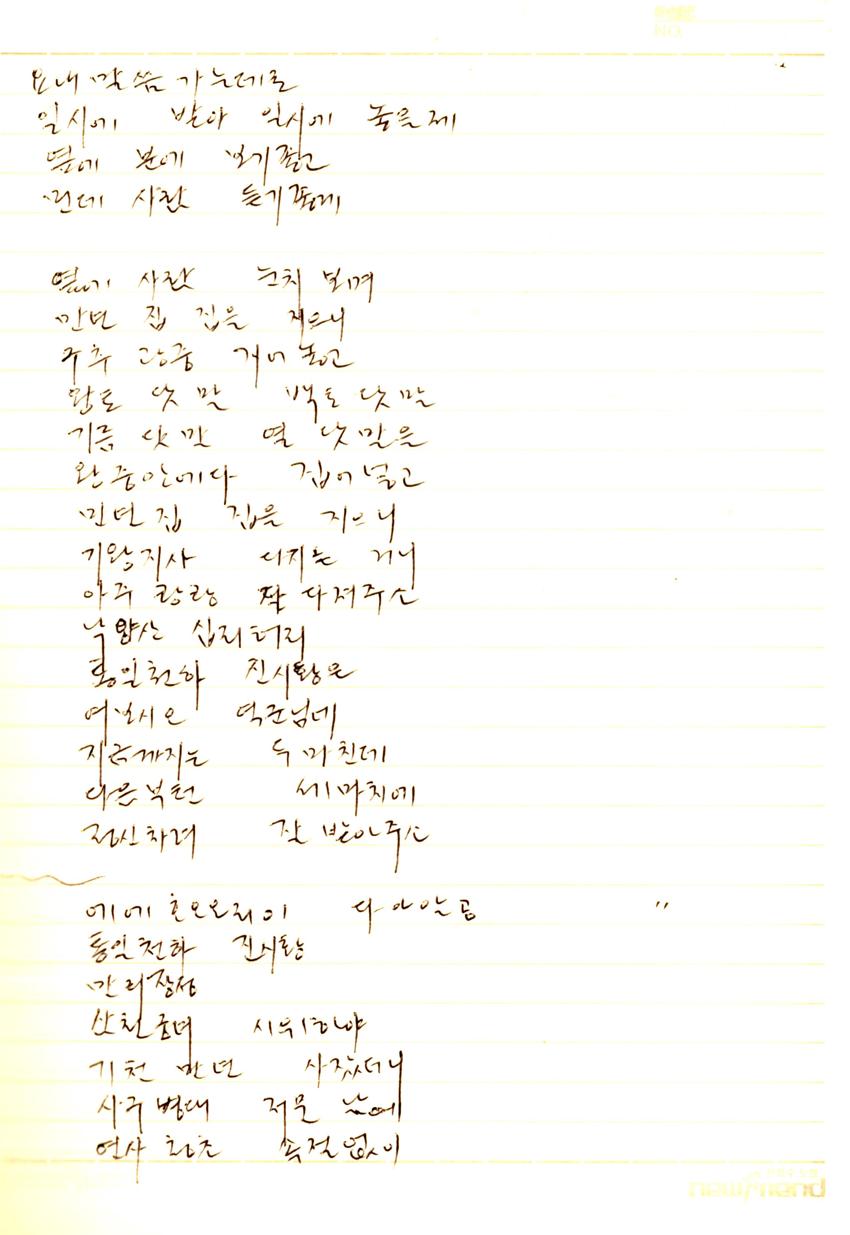 NO.
요내 말씀 가는데로
일시에 받아 일시에 놓을제
옆에 분에 보기좋고
먼데 사람 듣기좋게
옆에 사람 눈치 보며
만년 집 집을 지으니
주추 광중 거어 놓고
황토 닷 말 백토 닷 말
기름 닷 말 열 닷 말을
완중안에다 집어 널고
만년 집 집을 지으니
기왕지사 다지는 거니
아주 쾅쾅 잘 다져주소
낙양산 십리허리
통일천하 진시황은
여보시오 역군님네
지금까지는 두 마친데
다음부턴 세마치에
정신차려 잘 받아주소
에에 호오오리이 다아알공 〃
통일천하 진시황
만리장성
산천초녀 시위하야
기천 만년 사잤더니
사구 평대 저문 날에
여산 황초 속절없이
newfriend